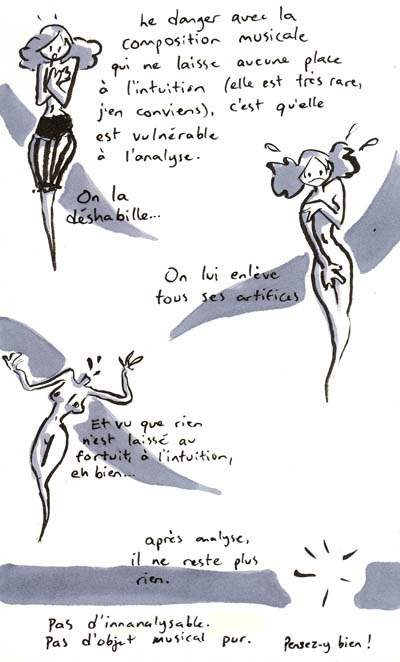 Le danger avec la
composition musicale
qui ne laisse aucune place
à l'intuition (elle est très rare,
j'en conviens), c'est qu'elle
est vulnérable
à l'analyse.
On la
déshabille...
On lui enlève
tous ses artifices
Et vu que rien
n'est laissé au
fortuit, à l'intuition,
eh bien...
après analyse,
il ne reste plus
rien.
Pas d'innanalysable.
Pas d'objet musical pur.
Pensez-y bien !